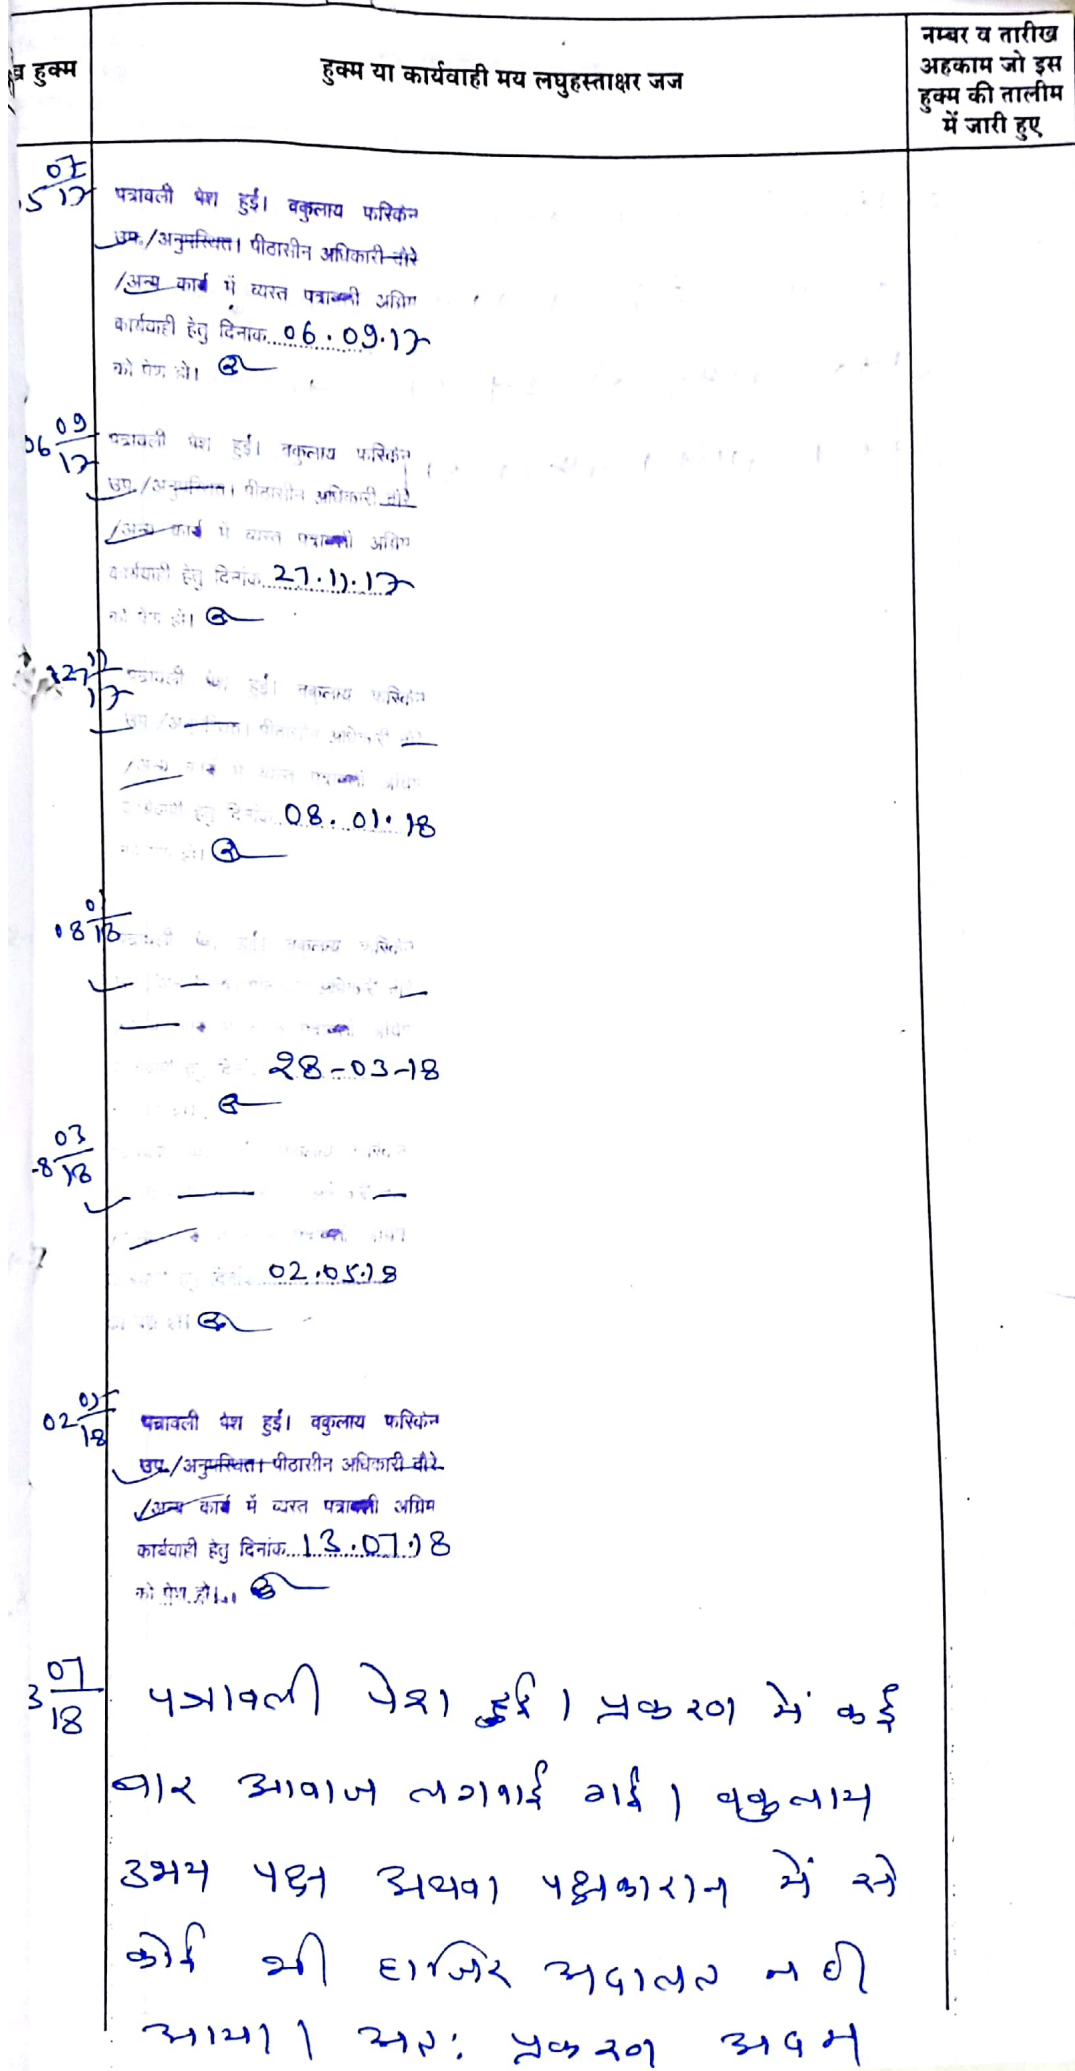 हुक्म
हुक्म या कार्यवाही मय लघुहस्ताक्षर जज
नम्बर व तारीख
अहकाम जो इस
हुक्म की तालीम
में जारी हुए
07
17
पत्रावली पेश हुई। वकुलाय फरिकेन
उप./अनुपस्थित। पीठासीन अधिकारी दौरे
/अन्य कार्य में व्यस्त पत्रावली अग्रिम
कार्यवाही हेतु दिनांक 06.09.17
को पेश हो।
06 09
17
पत्रावली पेश हुई। वकुलाय फरिकेन
उप./अनुपस्थित। पीठासीन अधिकारी दौरे
/अन्य कार्य में व्यस्त पत्रावली अग्रिम
कार्यवाही हेतु दिनांक 27.11.17
को पेश हो।
27 11
17
पत्रावली पेश हुई। वकुलाय फरिकेन
उप./अनुपस्थित। पीठासीन अधिकारी दौरे
/अन्य कार्य में व्यस्त पत्रावली अग्रिम
कार्यवाही हेतु दिनांक 08.01.18
08 01
18
वकुलाय फरिकेन
अधिकारी
28-03-18
03
8 18
02.05.18
02 05
18
पत्रावली पेश हुई। वकुलाय फरिकेन
उप./अनुपस्थित। पीठासीन अधिकारी दौरे
/अन्य कार्य में व्यस्त पत्रावली अग्रिम
कार्यवाही हेतु दिनांक 13.07.18
को पेश हो।
3 07
18
पत्रावली पेश हुई। प्रकरण में कई
बार आवाज लगवाई गई। वकुलाय
उभय पक्ष अथवा पक्षकारान में से
कोई भी हाजिर अदालत नही
आया। अत: प्रकरण अदम